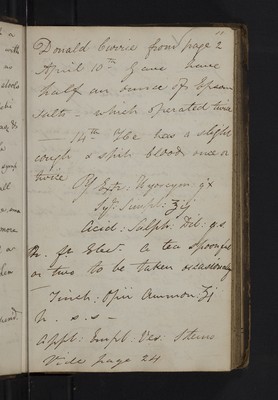 Donald Currie from page 2
April 10th Gave have
half an ounce of Epsom
Salts - which operated twice
14th He has a slight
cough & spits blood once or
twice Rx Extr: Hyoscyam: gr x
Syr: Simpl: ʒ ij
Acid: Sulph: Dil: q.s
m. ft Elect. A tea spoonful
or two to be taken occasionally
Tinct: Opii Ammon: ʒi
h. s. s -
Appl: Empl: Ves: Sterno
Vide page 24